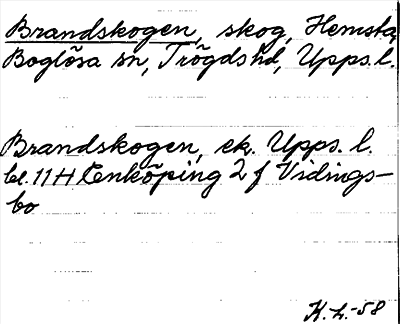 Brandskogen, skog, Hemsta
Boglösa sn, Trögds hd, Upps. l.
Brandskogen, ek. Upps. l.
bl. 11 H Enköping 2 f Vidings-
bo
K. L. -58